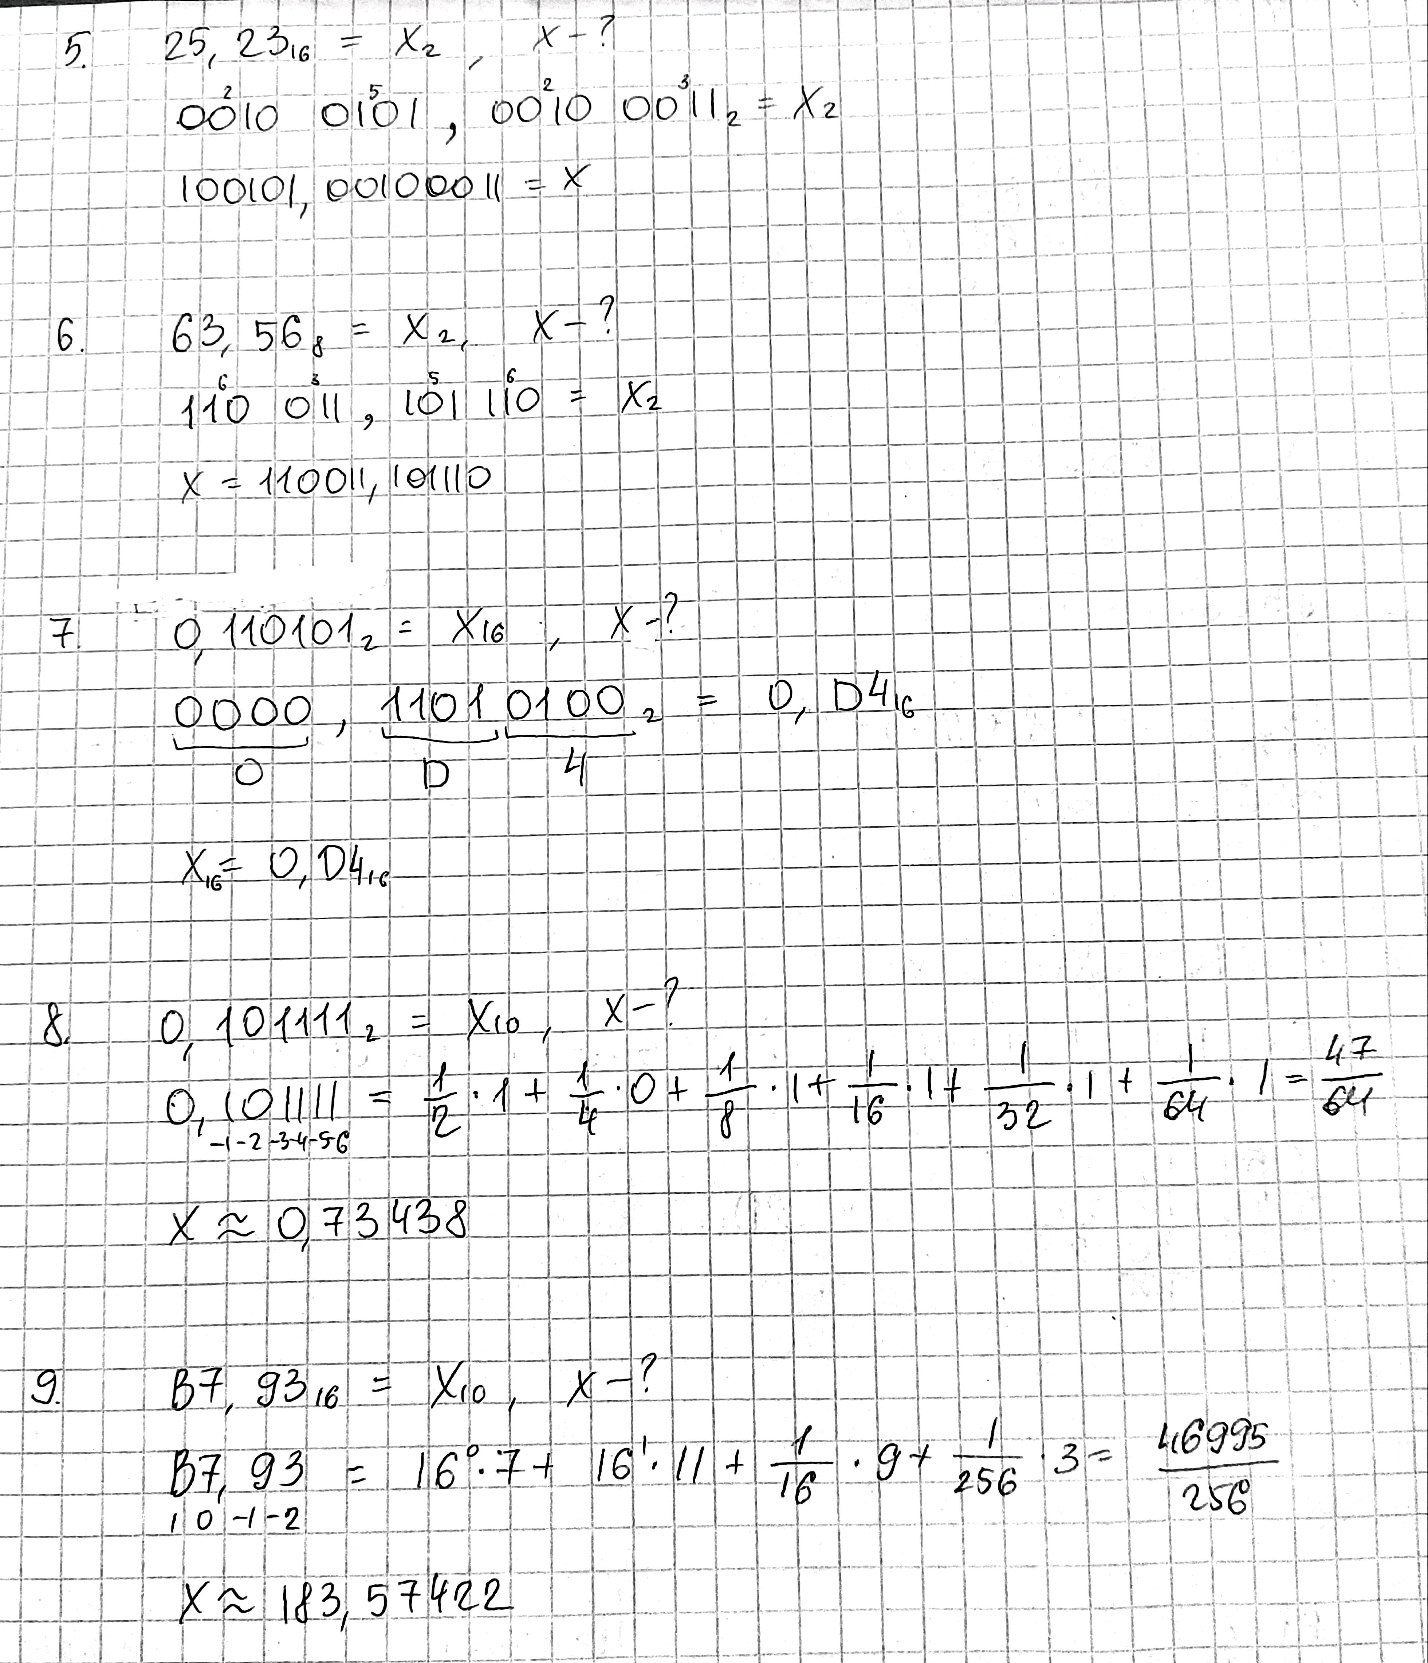 5. 25, 23₁₆ = X₂, X - ?
2 5 2 3
0010 0101, 0010 0011₂ = X₂
100101, 00100011 = X
6. 63, 56₈ = X₂, X - ?
6 3 5 6
110 011, 101 110 = X₂
X = 110011, 101110
7. 0, 110101₂ = X₁₆, X - ?
0000, 1101 0100₂ = 0, D4₁₆
0 D 4
X₁₆ = 0, D4₁₆
8. 0, 101111₂ = X₁₀, X - ?
0, 101111 = 1/2 · 1 + 1/4 · 0 + 1/8 · 1 + 1/16 · 1 + 1/32 · 1 + 1/64 · 1 = 47/64
-1 -2 -3 -4 -5 -6
X ≈ 0,73438
9. B7, 93₁₆ = X₁₀, X - ?
B7, 93 = 16⁰ · 7 + 16¹ · 11 + 1/16 · 9 + 1/256 · 3 = 46995/256
1 0 -1 -2
X ≈ 183,57422